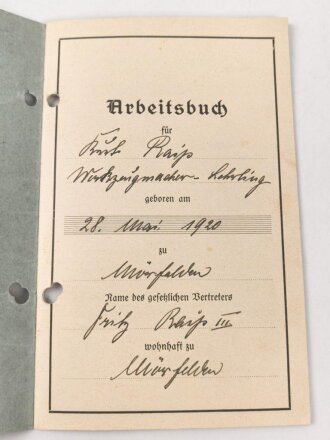 Arbeitsbuch
für
Kurt Raiß
Werkzeugmacher-Lehrling
geboren am
28. Mai 1920
zu
Mörfelden
Name des gesetzlichen Vertreters
Fritz Raiß III
wohnhaft zu
Mörfelden